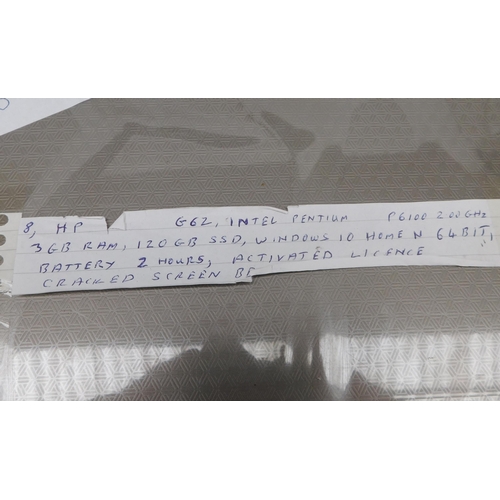 8, HP G62, INTEL PENTIUM P6100 2.00GHz
3GB RAM, 120GB SSD, WINDOWS 10 HOME N 64BIT,
BATTERY 2 HOURS, ACTIVATED LICENCE
CRACKED SCREEN